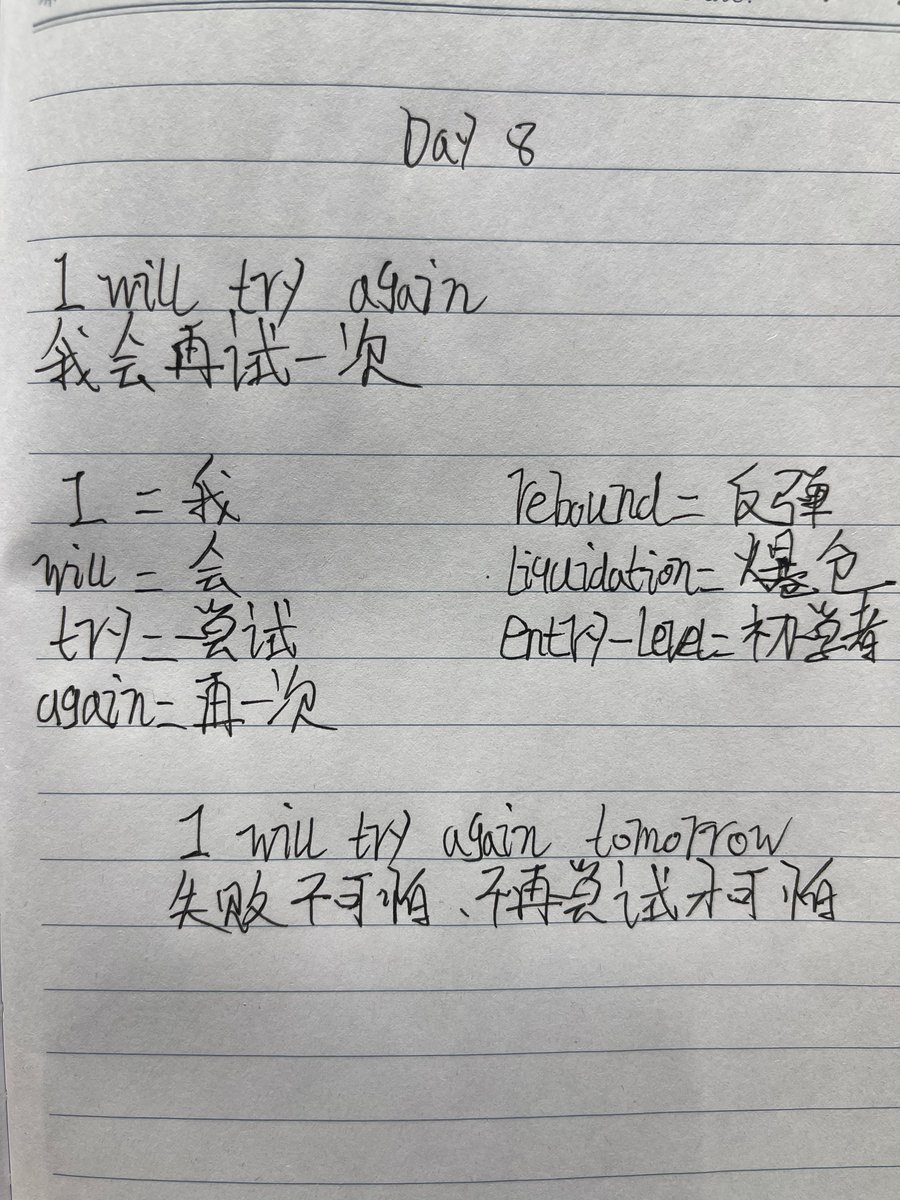 Day 8
I will try again
我会再试一次
I = 我
will = 会
try = 尝试
again = 再一次
rebound = 反弹
liquidation = 爆仓
entry-level = 初学者
I will try again tomorrow
失败不可怕、不再尝试才可怕